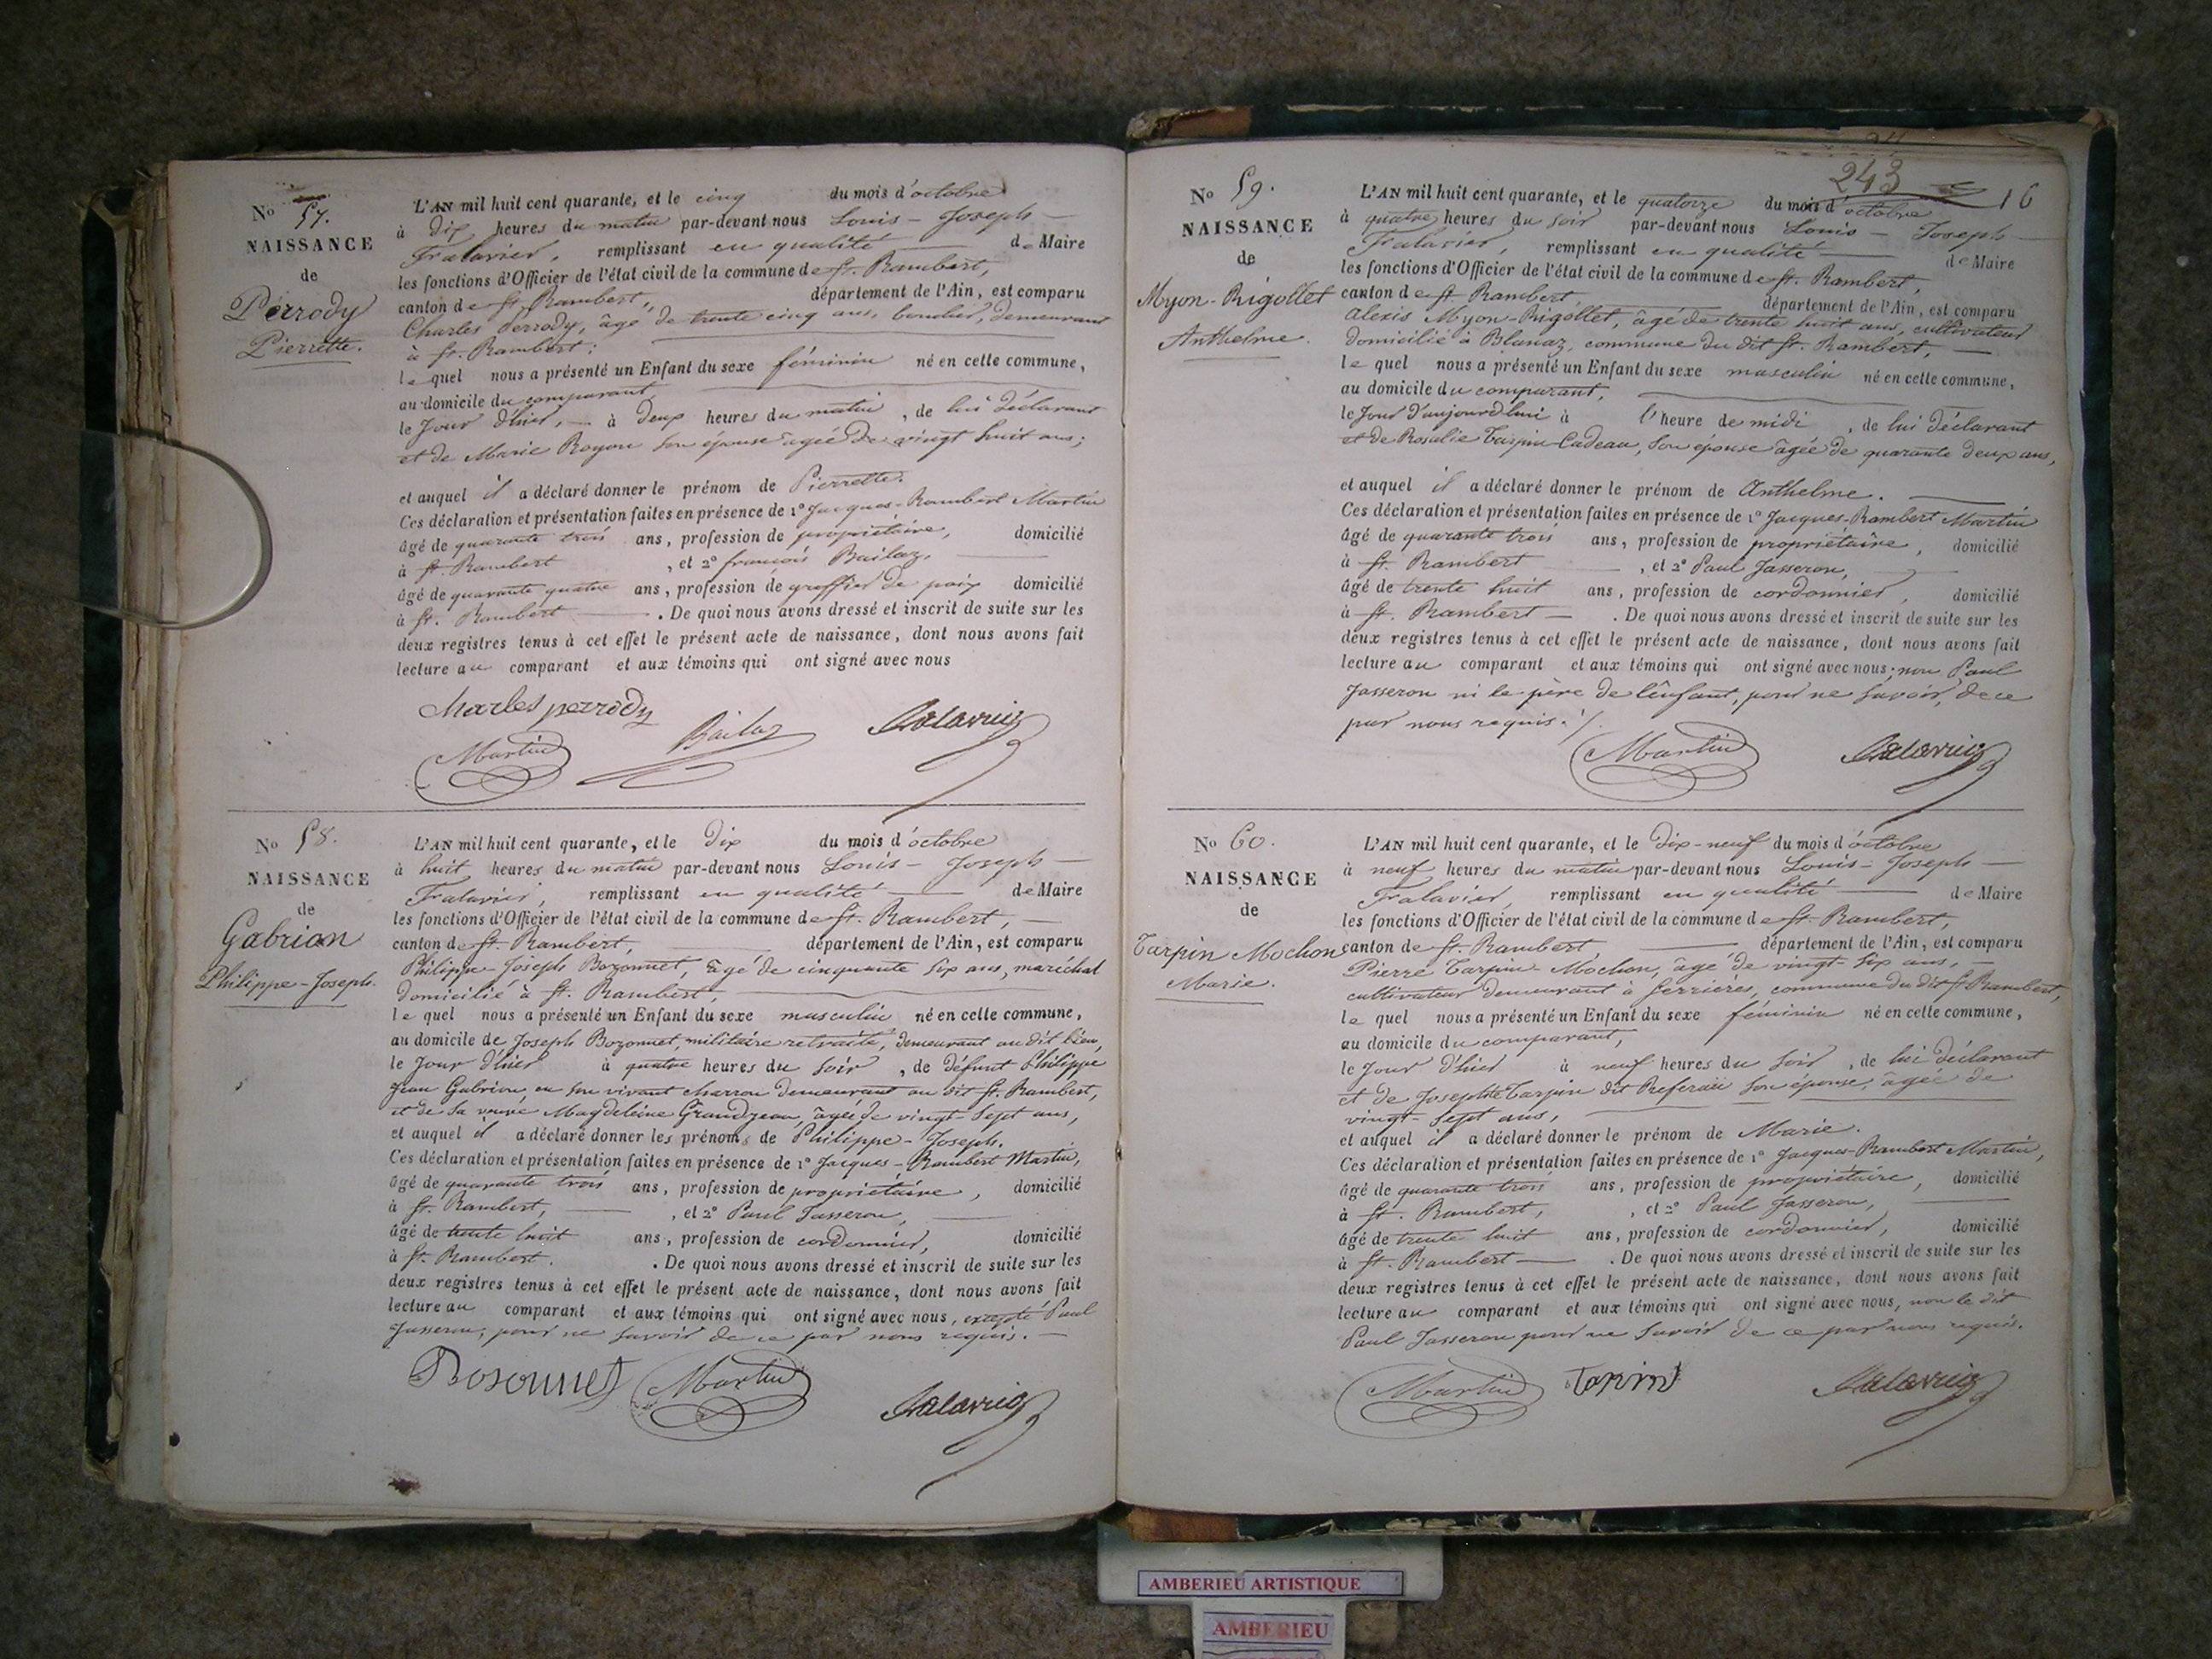 No 57.
NAISSANCE
de
Perrody
Pierrette.
L'AN mil huit cent quarante, et le cinq du mois d'octobre
à dix heures du matin par-devant nous Louis - Joseph
Fralavier, remplissant en qualité de Maire
les fonctions d'Officier de l'état civil de la commune de St. Rambert,
canton de St. Rambert, département de l'Ain, est comparu
Charles Perrody, âgé de trente cinq ans, boucher, demeurant
à St. Rambert;
lequel nous a présenté un Enfant du sexe féminin né en cette commune,
au domicile du comparant
le jour d'hier, à deux heures du matin, de lui déclarant
et de Marie Royon son épouse âgée de vingt huit ans;
et auquel il a déclaré donner le prénom de Pierrette.
Ces déclaration et présentation faites en présence de 1º Jacques-Rambert Martin
âgé de quarante trois ans, profession de propriétaire, domicilié
à St. Rambert, et 2º françois Bailaz,
âgé de quarante quatre ans, profession de greffier de paix domicilié
à St. Rambert. De quoi nous avons dressé et inscrit de suite sur les
deux registres tenus à cet effet le présent acte de naissance, dont nous avons fait
lecture au comparant et aux témoins qui ont signé avec nous
Charles perrody
Martin Bailaz Fralavier
No 58.
NAISSANCE
de
Gabrion
Philippe-Joseph.
L'AN mil huit cent quarante, et le dix du mois d'octobre
à huit heures du matin par-devant nous Louis - Joseph
Fralavier, remplissant en qualité de Maire
les fonctions d'Officier de l'état civil de la commune de St. Rambert,
canton de St. Rambert, département de l'Ain, est comparu
Philippe-Joseph Bozonnet, âgé de cinquante six ans, maréchal
domicilié à St. Rambert,
lequel nous a présenté un Enfant du sexe masculin né en cette commune,
au domicile de Joseph Bozonnet, militaire retraité, demeurant au dit lieu,
le jour d'hier à quatre heures du soir, de défunt Philippe
Jean Gabrion, en son vivant charron demeurant au dit St. Rambert,
et de sa veuve Magdeleine Grandjean, âgée de vingt-sept ans,
et auquel il a déclaré donner les prénoms de Philippe-Joseph.
Ces déclaration et présentation faites en présence de 1º Jacques-Rambert Martin,
âgé de quarante trois ans, profession de propriétaire, domicilié
à St. Rambert, et 2º Paul Jasseron,
âgé de trente huit ans, profession de cordonnier, domicilié
à St. Rambert. De quoi nous avons dressé et inscrit de suite sur les
deux registres tenus à cet effet le présent acte de naissance, dont nous avons fait
lecture au comparant et aux témoins qui ont signé avec nous, excepté Paul
Jasseron, pour ne savoir de ce par nous requis.
Bosonnet Martin Fralavier
243
16
No 59.
NAISSANCE
de
Myon-Rigollet
Anthelme.
L'AN mil huit cent quarante, et le quatorze du mois d'octobre
à quatre heures du soir par-devant nous Louis - Joseph
Fralavier, remplissant en qualité de Maire
les fonctions d'Officier de l'état civil de la commune de St. Rambert,
canton de St. Rambert département de l'Ain, est comparu
Alexis Myon-Rigollet, âgé de trente huit ans, cultivateur
domicilié à Blanaz, commune du dit St. Rambert,
lequel nous a présenté un Enfant du sexe masculin né en cette commune,
au domicile du comparant,
le jour d'aujourd'hui à l'heure de midi, de lui déclarant
et de Rosalie Tarpin-Cadeau, son épouse âgée de quarante deux ans,
et auquel il a déclaré donner le prénom de Anthelme.
Ces déclaration et présentation faites en présence de 1º Jacques-Rambert Martin
âgé de quarante trois ans, profession de propriétaire, domicilié
à St. Rambert, et 2º Paul Jasseron,
âgé de trente huit ans, profession de cordonnier, domicilié
à St. Rambert. De quoi nous avons dressé et inscrit de suite sur les
deux registres tenus à cet effet le présent acte de naissance, dont nous avons fait
lecture au comparant et aux témoins qui ont signé avec nous; non Paul
Jasseron ni le père de l'enfant, pour ne savoir, de ce
par nous requis.
Martin Fralavier
No 60.
NAISSANCE
de
Tarpin Mochon
Marie.
L'AN mil huit cent quarante, et le dix-neuf du mois d'octobre
à neuf heures du matin par-devant nous Louis - Joseph
Fralavier, remplissant en qualité de Maire
les fonctions d'Officier de l'état civil de la commune de St. Rambert,
canton de St. Rambert, département de l'Ain, est comparu
Pierre Tarpin-Mochon, âgé de vingt-six ans,
cultivateur demeurant à Serrières, commune du dit St Rambert,
lequel nous a présenté un Enfant du sexe féminin né en cette commune,
au domicile du comparant,
le jour d'hier à neuf heures du soir, de lui déclarant
et de Josephte Tarpin dit son épouse, âgée de
vingt-sept ans,
et auquel il a déclaré donner le prénom de Marie.
Ces déclaration et présentation faites en présence de 1º Jacques-Rambert Martin,
âgé de quarante trois ans, profession de propriétaire, domicilié
à St. Rambert, et 2º Paul Jasseron,
âgé de trente huit ans, profession de cordonnier, domicilié
à St. Rambert. De quoi nous avons dressé et inscrit de suite sur les
deux registres tenus à cet effet le présent acte de naissance, dont nous avons fait
lecture au comparant et aux témoins qui ont signé avec nous, non le dit
Paul Jasseron pour ne savoir de ce par nous requis.
Martin Tarpin Fralavier
AMBERIEU ARTISTIQUE
AMBERIEU